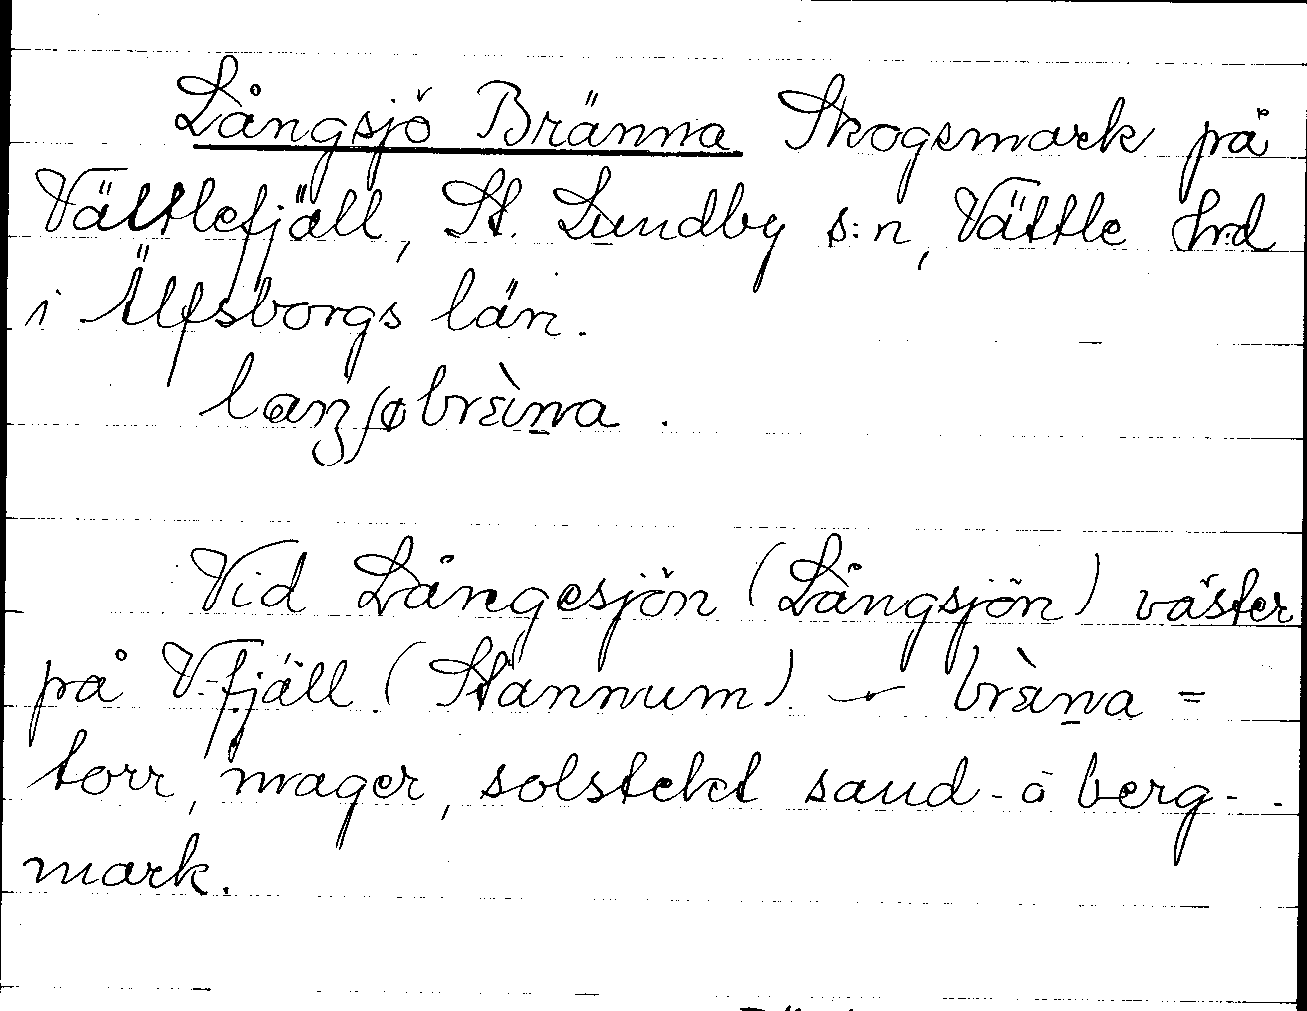 Långsjö Bränna Skogsmark på
Vättlefjäll, St. Lundby s:n, Vättle hrd
i Älfsborgs län.
Vid Långesjön (Långsjön) väster
på V-fjäll (Stannum) - brɛ̀na =
torr, mager, solstekt sand- o berg-
mark.